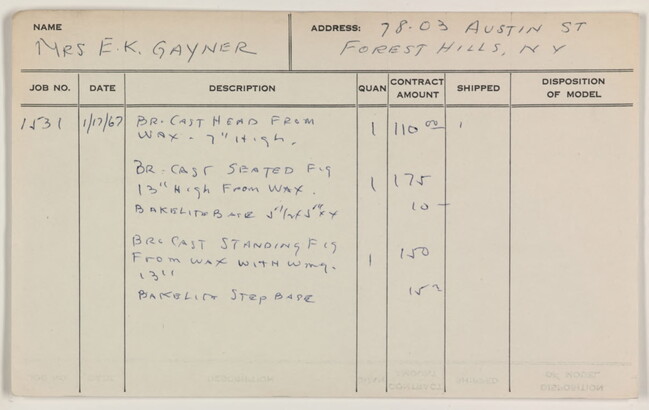 NAME
MRS E.K. GAYNER
ADDRESS: 78-03 AUSTIN ST
FOREST HILLS, NY
JOB NO. DATE DESCRIPTION QUAN CONTRACT AMOUNT SHIPPED DISPOSITION OF MODEL
1531 1/17/67 BR. CAST HEAD FROM
WAX - 7" High. 1 110 00
BR. CAST SEATED Fig
13" High From WAX. 1 175
BAKELITE BASE 10 -
BRC CAST STANDING Fig
From WAX WITH 1 150
13"
BAKELITE STEP BASE